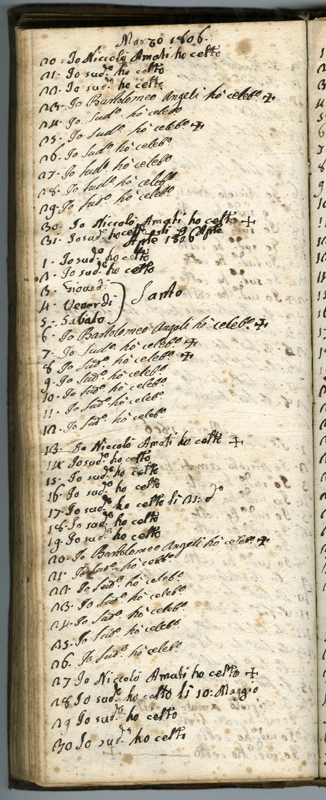 Marzo 1806.
20. Io Niccolò Amati ho celto
21. Io sudo. ho celto
22. Io sudo. ho celto
23. Io Bartolomeo Angeli hò celebo. +
24. Io Sudo. hò celebo
25. Io Sudo. hò celebo. +
26. Io Sudo. hò celebo
27. Io sudo. hò celebo
28. Io sudo. hò celebo
29. Io sudo. hò celebo
30. Io Niccolò Amati ho celto +
31. Io sudo. ho celto
Aple 1806
1. Io sudo. ho celto
2. Io sudo. ho celto
3. Giovedì
4. Venerdì } Santo
5. Sabato
6. Io Bartolomeo Angeli hò celebo. +
7. Io Sudo. hò celebo. +
8. Io Sudo. hò celebo. +
9. Io Sudo. hò celebo
10. Io Sudo. hò celebo
11. Io Sudo. hò celebo
12. Io Sudo. hò celebo
13. Io Niccolò Amati ho celto +
14. Io sudo. ho celto
15. Io sudo. ho celto
16. Io sudo. ho celto
17. Io sudo. ho celto li 21. do
18. Io sudo. ho celto
19. Io sudo. ho celto
20. Io Bartolomeo Angeli hò celebo. +
21. Io Sudo. hò celebo
22. Io Sudo. hò celebo.
23. Io Sudo. hò celebo
24. Io Sudo. hò celebo
25. Io Sudo. hò celebo
26. Io Sudo. hò celebo.
27 Io Niccolò Amati ho celto +
28 Io sudo. ho celto li 10: Maggio
29 Io sudo. ho celto
30 Io sudo. ho celto